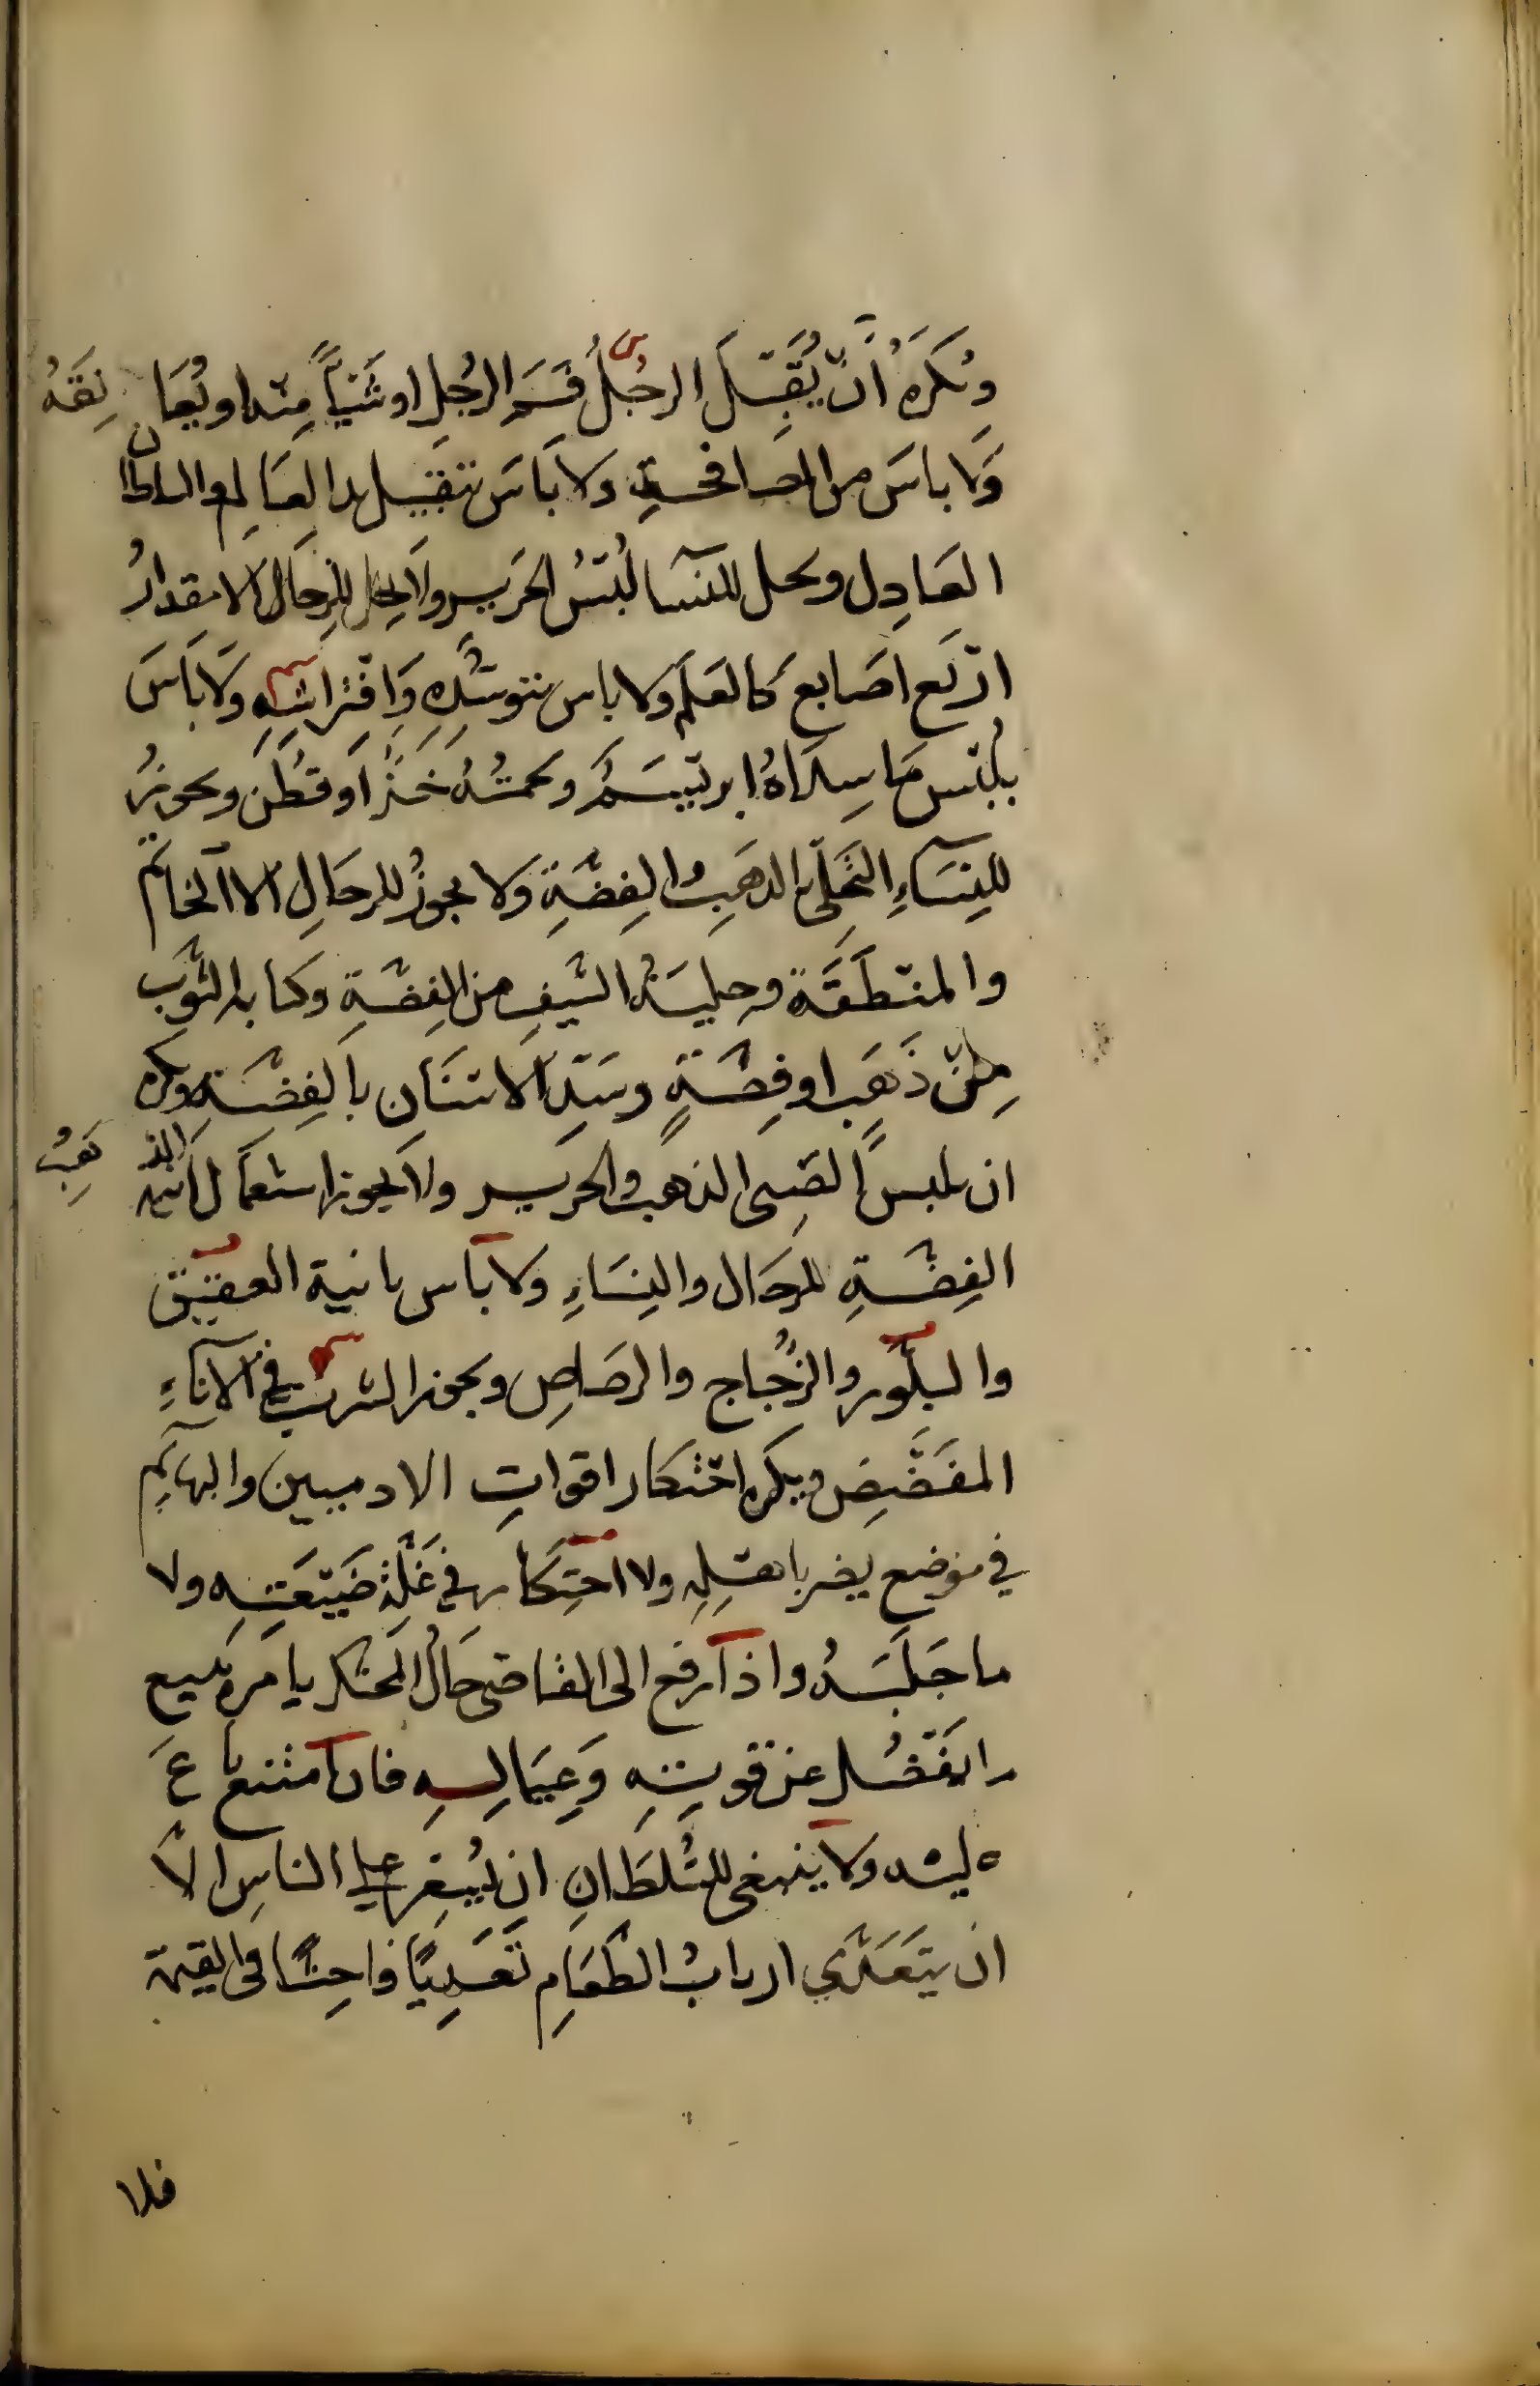 وَيُكرَهُ أنْ يُقَبِّلَ الرجُلُ فَمَ الرجُلِ اوشَيْأً مِنْه او يُعَانِقَهُ
وَلا باسَ من المصافحةِ ولا بَاسَ بتقبيل يد العَالِم والسلطان
العَادِل ويحل للنسآ لُبْسُ الحَرير ولا يحل للرجال الا مقدارُ
ارْبَع اصَابعَ كالعَلَم ولا باس بتوسُّدِهِ وَافْتِراشِهِ وَلَا بَاسَ
بلُبْس مَا سِدَاهُ ابريْسَم ولحمتُهُ خَزٌّ اَو قُطْن ويجوزُ
للنِسَآءِ التَحَلّى بالذهَبِ والفِضّةِ وَلا يجوزُ للرجَالِ الا الخاتم
والمنْطَقَة وحِليَةُ السّيفِ من الفِضّةِ وكتابة الثّوب
مِنْ ذَهَبٍ او فِضّةٍ وشدّ الاسْنَان بالفِضّةِ ويكره
ان يلبسَ الصّبى الذهب والحرير ولا يجوز استعمَال آنية الذهبِ
الفِضّةِ للرجَال والنِسَاءِ ولا بَاس بانية العقيق
والبلّور والزُّجاج والرصَاصِ ويجوز الشرب فى الآناءِ
المفَضّضِ ويكره احْتكار اقواتِ الادميين والبهائِم
في موضع يضر باهلِهِ ولا احتِكَار فى غَلّة ضَيْعَتِهِ ولا
ما جَلَبَهُ واذا رفع الى القاضى حَالُ المحتكر يامره ببيع
ـر الفَضْل عن قوتِهِ وَعِيَالِهِ فان امتنع باع
ـه ليه ولا ينبغى للسُّلطَانِ ان يُسَعِّر على الناسِ الّا
ان يتَعَدَّي اربابُ الطّعَامِ تَعَدِيًا فاحِشًا فى القيمة
فلا